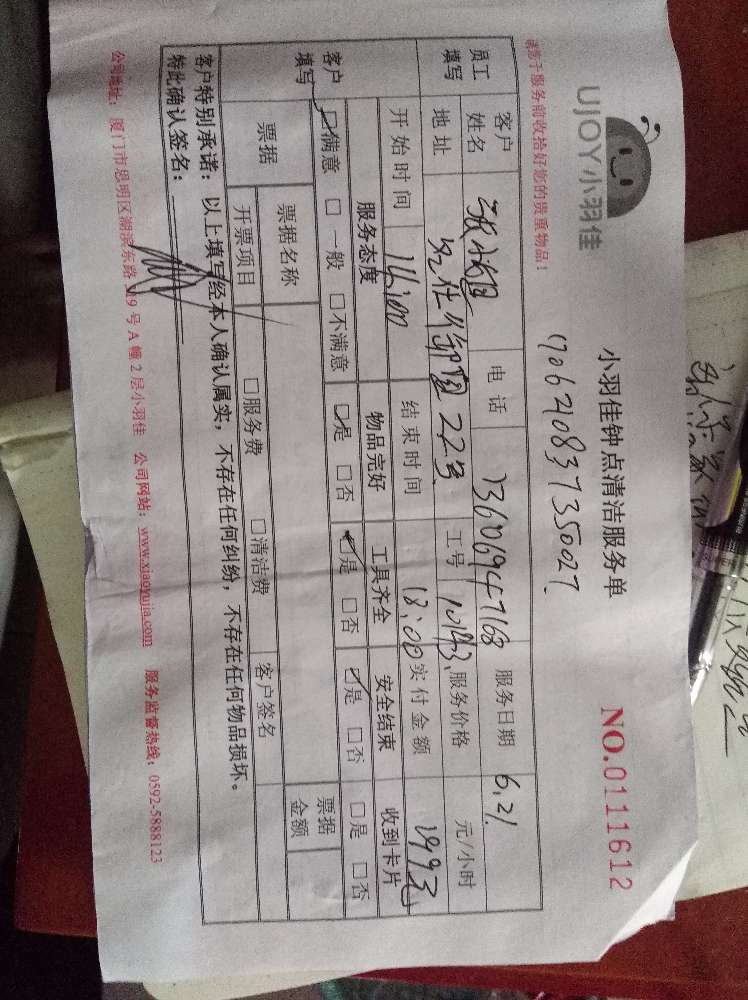 UJOY小羽佳
小羽佳钟点清洁服务单
NO.0111612
请您于服务前收拾好您的贵重物品!
1706210837350027
员工填写
客户姓名 电话 13606947168 服务日期 6.21
地址 22号 工号 10143 服务价格 元/小时
开始时间 14:00 结束时间 18:00 实付金额 199元
客户填写
服务态度 物品完好 工具齐全 安全结束 收到卡片
☑满意 □一般 □不满意 ☑是 □否 ☑是 □否 ☑是 □否 □是 □否
票据 票据名称 票据金额
开票项目 □服务费 □清洁费 客户签名
客户特别承诺:以上填写经本人确认属实,不存在任何纠纷,不存在任何物品损坏。
特此确认签名:
公司地址:厦门市思明区湖滨东路319号A幢2层小羽佳 公司网站:www.xiaoyujia.com 服务监督热线:0592-5888123